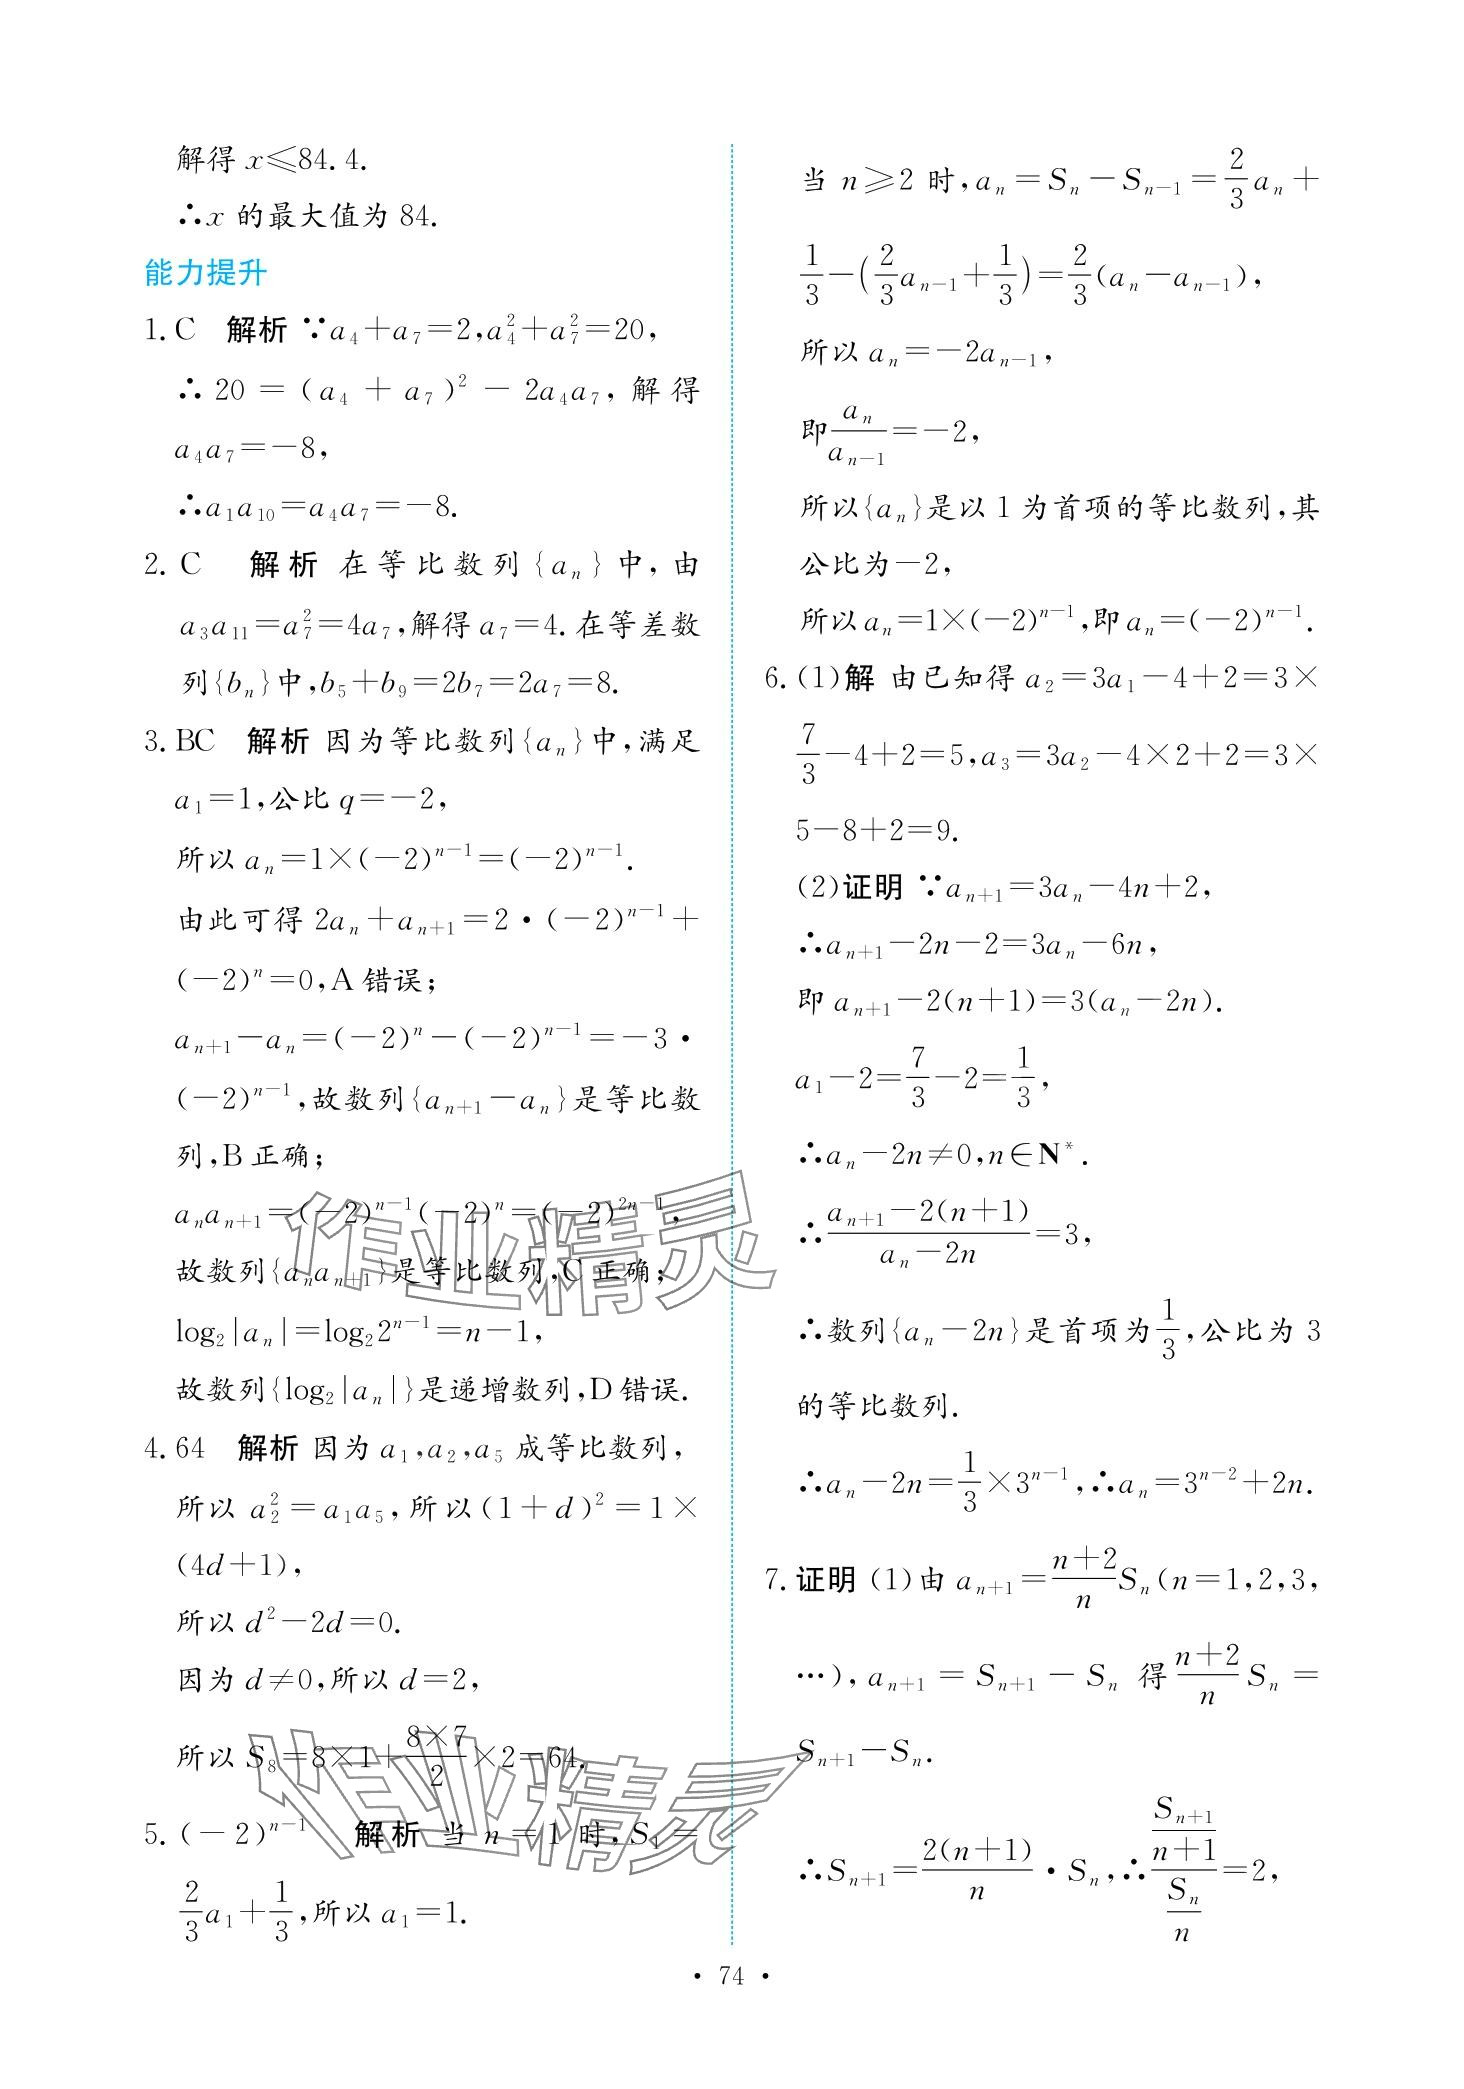 解得 x≤84.4.
∴x 的最大值为 84.
能力提升
1. C 解析 ∵a₄+a₇=2,a₄²+a₇²=20,
∴ 20 = (a₄ + a₇)² - 2a₄a₇, 解得
a₄a₇=-8,
∴a₁a₁₀=a₄a₇=-8.
2. C 解析 在等比数列{aₙ}中,由
a₃a₁₁=a₇²=4a₇,解得 a₇=4. 在等差数
列{bₙ}中,b₅+b₉=2b₇=2a₇=8.
3. BC 解析 因为等比数列{aₙ}中,满足
a₁=1,公比 q=-2,
所以 aₙ=1×(-2)ⁿ⁻¹=(-2)ⁿ⁻¹.
由此可得 2aₙ+aₙ₊₁=2·(-2)ⁿ⁻¹+
(-2)ⁿ=0,A 错误;
aₙ₊₁-aₙ=(-2)ⁿ-(-2)ⁿ⁻¹=-3·
(-2)ⁿ⁻¹,故数列{aₙ₊₁-aₙ}是等比数
列,B 正确;
aₙaₙ₊₁=(-2)ⁿ⁻¹(-2)ⁿ=(-2)²ⁿ⁻¹,
故数列{aₙaₙ₊₁}是等比数列,C 正确;
log₂|aₙ|=log₂2ⁿ⁻¹=n-1,
故数列{log₂|aₙ|}是递增数列,D 错误.
4. 64 解析 因为 a₁,a₂,a₅ 成等比数列,
所以 a₂²=a₁a₅,所以(1+d)²=1×
(4d+1),
所以 d²-2d=0.
因为 d≠0,所以 d=2,
所以 S₈=8×1+8×7/2×2=64.
5. (-2)ⁿ⁻¹ 解析 当 n=1 时,S₁=
2/3a₁+1/3,所以 a₁=1.
当 n≥2 时,aₙ=Sₙ-Sₙ₋₁=2/3aₙ+
1/3-(2/3aₙ₋₁+1/3)=2/3(aₙ-aₙ₋₁),
所以 aₙ=-2aₙ₋₁,
即aₙ/aₙ₋₁=-2,
所以{aₙ}是以 1 为首项的等比数列,其
公比为-2,
所以 aₙ=1×(-2)ⁿ⁻¹,即 aₙ=(-2)ⁿ⁻¹.
6. (1)解 由已知得 a₂=3a₁-4+2=3×
7/3-4+2=5,a₃=3a₂-4×2+2=3×
5-8+2=9.
(2)证明 ∵aₙ₊₁=3aₙ-4n+2,
∴aₙ₊₁-2n-2=3aₙ-6n,
即 aₙ₊₁-2(n+1)=3(aₙ-2n).
a₁-2=7/3-2=1/3,
∴aₙ-2n≠0,n∈N*.
∴(aₙ₊₁-2(n+1))/(aₙ-2n)=3,
∴数列{aₙ-2n}是首项为1/3,公比为 3
的等比数列.
∴aₙ-2n=1/3×3ⁿ⁻¹,∴aₙ=3ⁿ⁻²+2n.
7. 证明 (1)由 aₙ₊₁=(n+2)/n Sₙ(n=1,2,3,
…),aₙ₊₁=Sₙ₊₁-Sₙ 得 (n+2)/n Sₙ=
Sₙ₊₁-Sₙ.
∴Sₙ₊₁=2(n+1)/n·Sₙ,∴(Sₙ₊₁/(n+1))/(Sₙ/n)=2,
作业精灵
作业精灵
· 74 ·